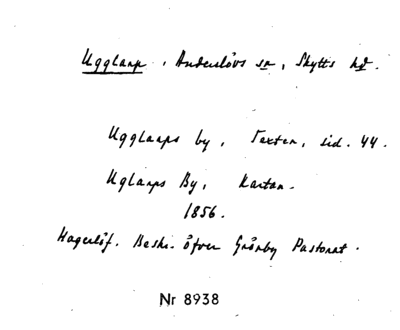 Ugglarp, Anderslövs sn, Skytts hd.
Ugglarps by, Texten, sid. 44.
Uglarps By, Kartan.
1856.
Hagerlöf. Beskr. öfver Grönby Pastorat.
Nr 8938